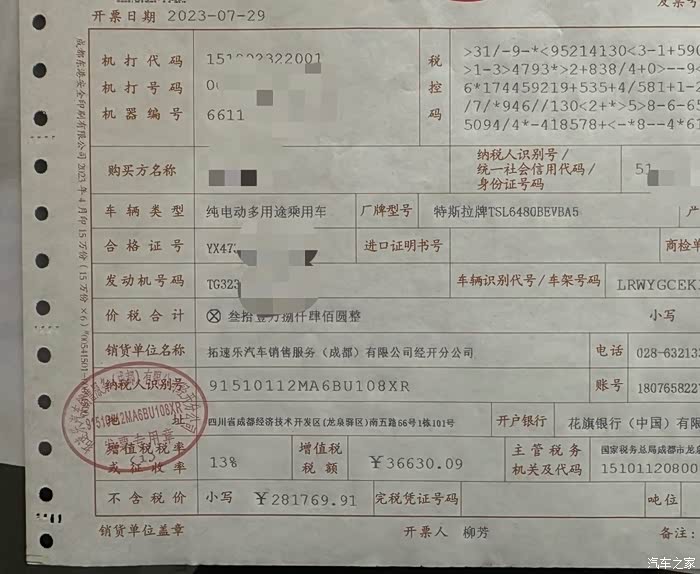 开票日期 2023-07-29
发票号
机打代码
机打号码
机器编号
322001
6611
税控码
>31/-9-*<95214130<3-1+590
>1-3>4793*>2+838/4+0>--9<
6*174459219+535+4/581+1-2
/7/*946//130<2+*>5>8-6-65
5094/4*-418578+<-*8--4*61
购买方名称
纳税人识别号/
统一社会信用代码/
身份证号码
51
车辆类型 纯电动多用途乘用车 厂牌型号 特斯拉牌TSL6480BEVBA5 产
合格证号 YX473 进口证明书号 商检单
发动机号码 TG323 车辆识别代号/车架号码 LRWYGCEK
价税合计 ⊗ 叁拾壹万捌仟肆佰圆整 小写
销货单位名称 拓速乐汽车销售服务（成都）有限公司经开分公司 电话 028-632133
纳税人识别号 91510112MA6BU108XR 账号 180765822
地址 四川省成都经济技术开发区(龙泉驿区)南五路66号1栋101号 开户银行 花旗银行（中国）有限
增值税税率
或征收率
13%
增值税
税额
￥36630.09
主管税务
机关及代码
国家税务总局成都市龙泉
15101120800
不含税价 小写 ￥281769.91 完税凭证号码 吨位
销货单位盖章 开票人 柳芳 备注:
91510112MA6BU108XR
发票专用章
成都东港安全印刷有限公司 2023年4月印15万份(15万份×6)
汽车之家